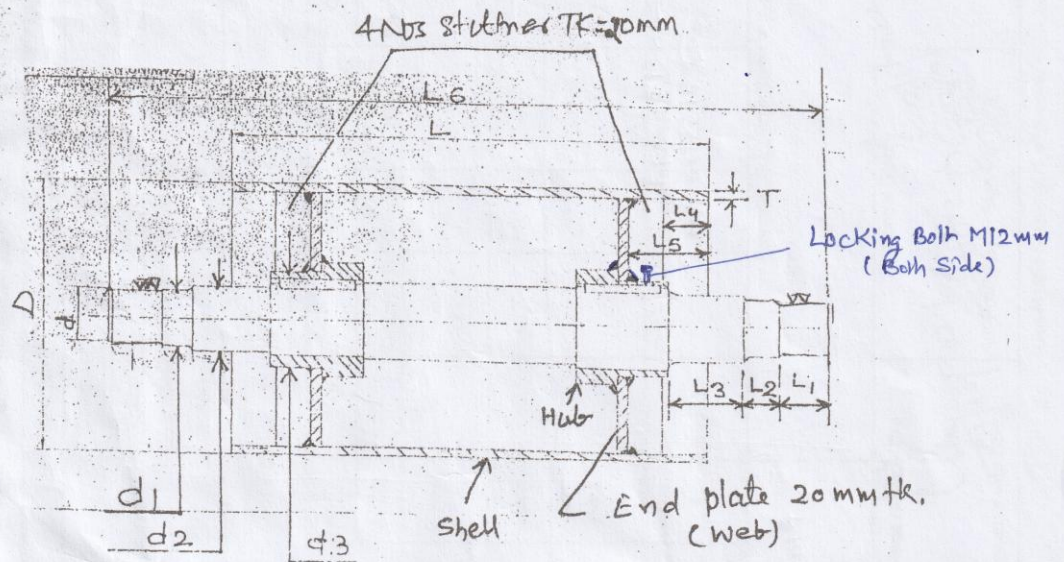 4 Nos stiffner TK=20mm
L6
L
T
L4
L5
Locking Bolth M12mm
(Both Side)
D
d
L3
L2
L1
Hub
d1
d2
d3
Shell
End plate 20mm tk.
(web)